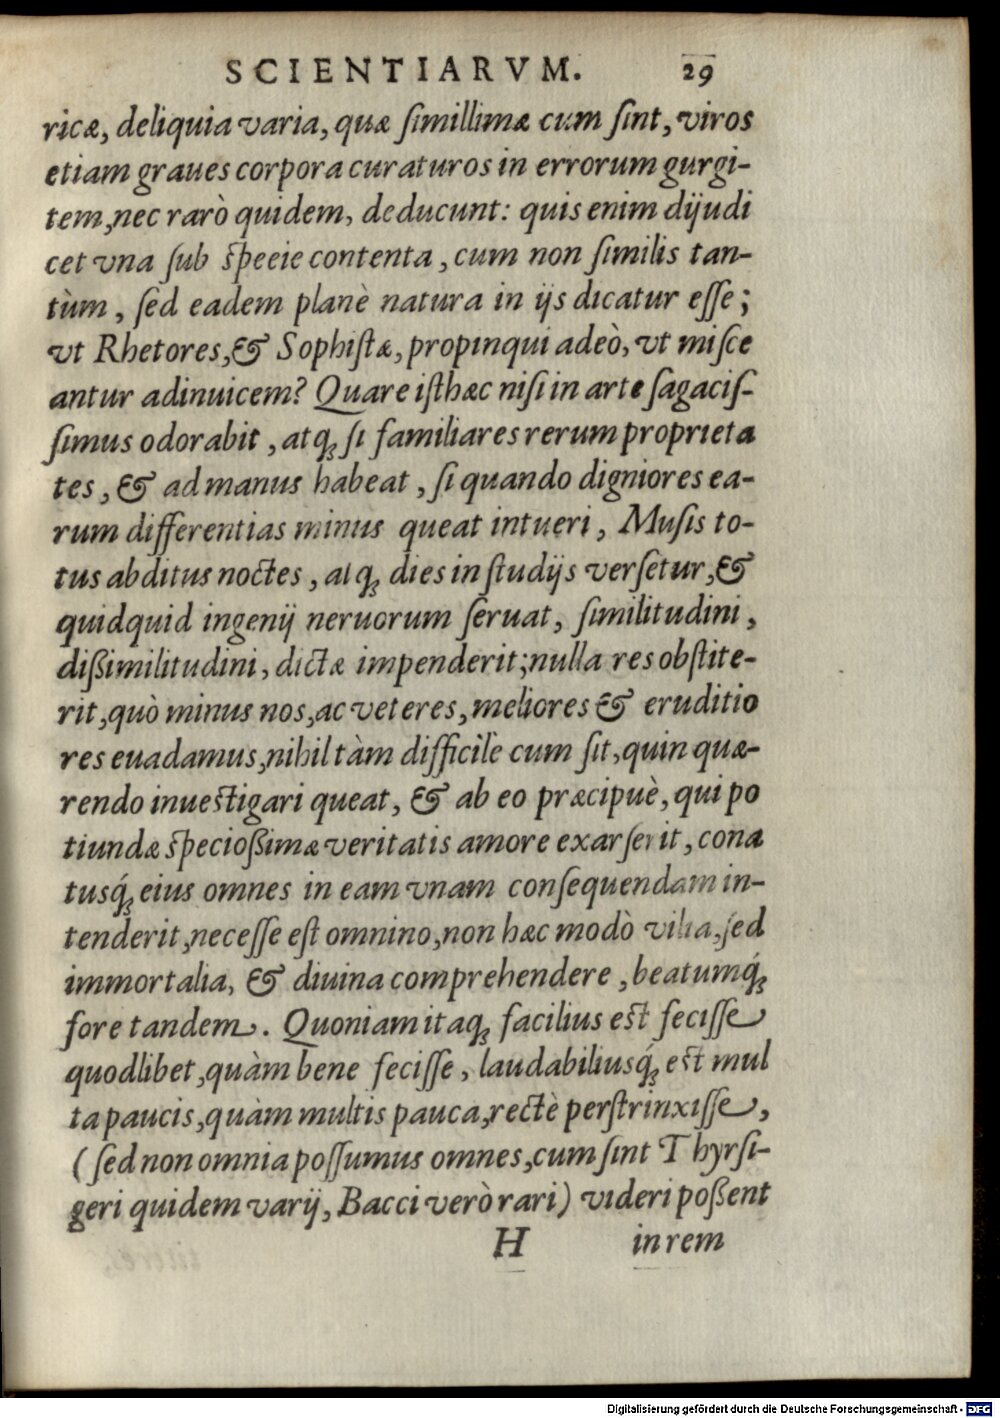 SCIENTIARVM. 29
ricæ, deliquia varia, quæ ſimillimæ cum ſint, viros
etiam graues corpora curaturos in errorum gurgi-
tem, nec rarò quidem, deducunt: quis enim dijudi
cet vna ſub ſpeeie contenta, cum non ſimilis tan-
tùm, ſed eadem planè natura in ijs dicatur eſſe;
vt Rhetores, & Sophiſtæ, propinqui adeò, vt miſce
antur adinuicem? Quare iſthæc niſi in arte ſagaciſ-
ſimus odorabit, atq; ſi familiares rerum proprieta
tes, & ad manus habeat, ſi quando digniores ea-
rum differentias minus queat intueri, Muſis to-
tus abditus noctes, atq; dies in ſtudijs verſetur, &
quidquid ingenij neruorum ſeruat, ſimilitudini,
dißimilitudini, dictæ impenderit; nulla res obſtite-
rit, quò minus nos, ac veteres, meliores & eruditio
res euadamus, nihil tàm difficile cum ſit, quin quæ-
rendo inueſtigari queat, & ab eo præcipuè, qui po
tiundæ ſpecioßimæ veritatis amore exarſerit, cona
tusq́; eius omnes in eam vnam conſequendam in-
tenderit, neceſſe eſt omnino, non hæc modò vilia, ſed
immortalia, & diuina comprehendere, beatumq́;
fore tandem. Quoniam itaq; facilius eſt feciſſe
quodlibet, quàm bene feciſſe, laudabiliusq́; eſt mul
ta paucis, quàm multis pauca, rectè perſtrinxiſſe,
(ſed non omnia poſſumus omnes, cum ſint Thyrſi-
geri quidem varij, Bacci verò rari) videri poßent
H in rem
Digitalisierung gefördert durch die Deutsche Forschungsgemeinschaft - DFG